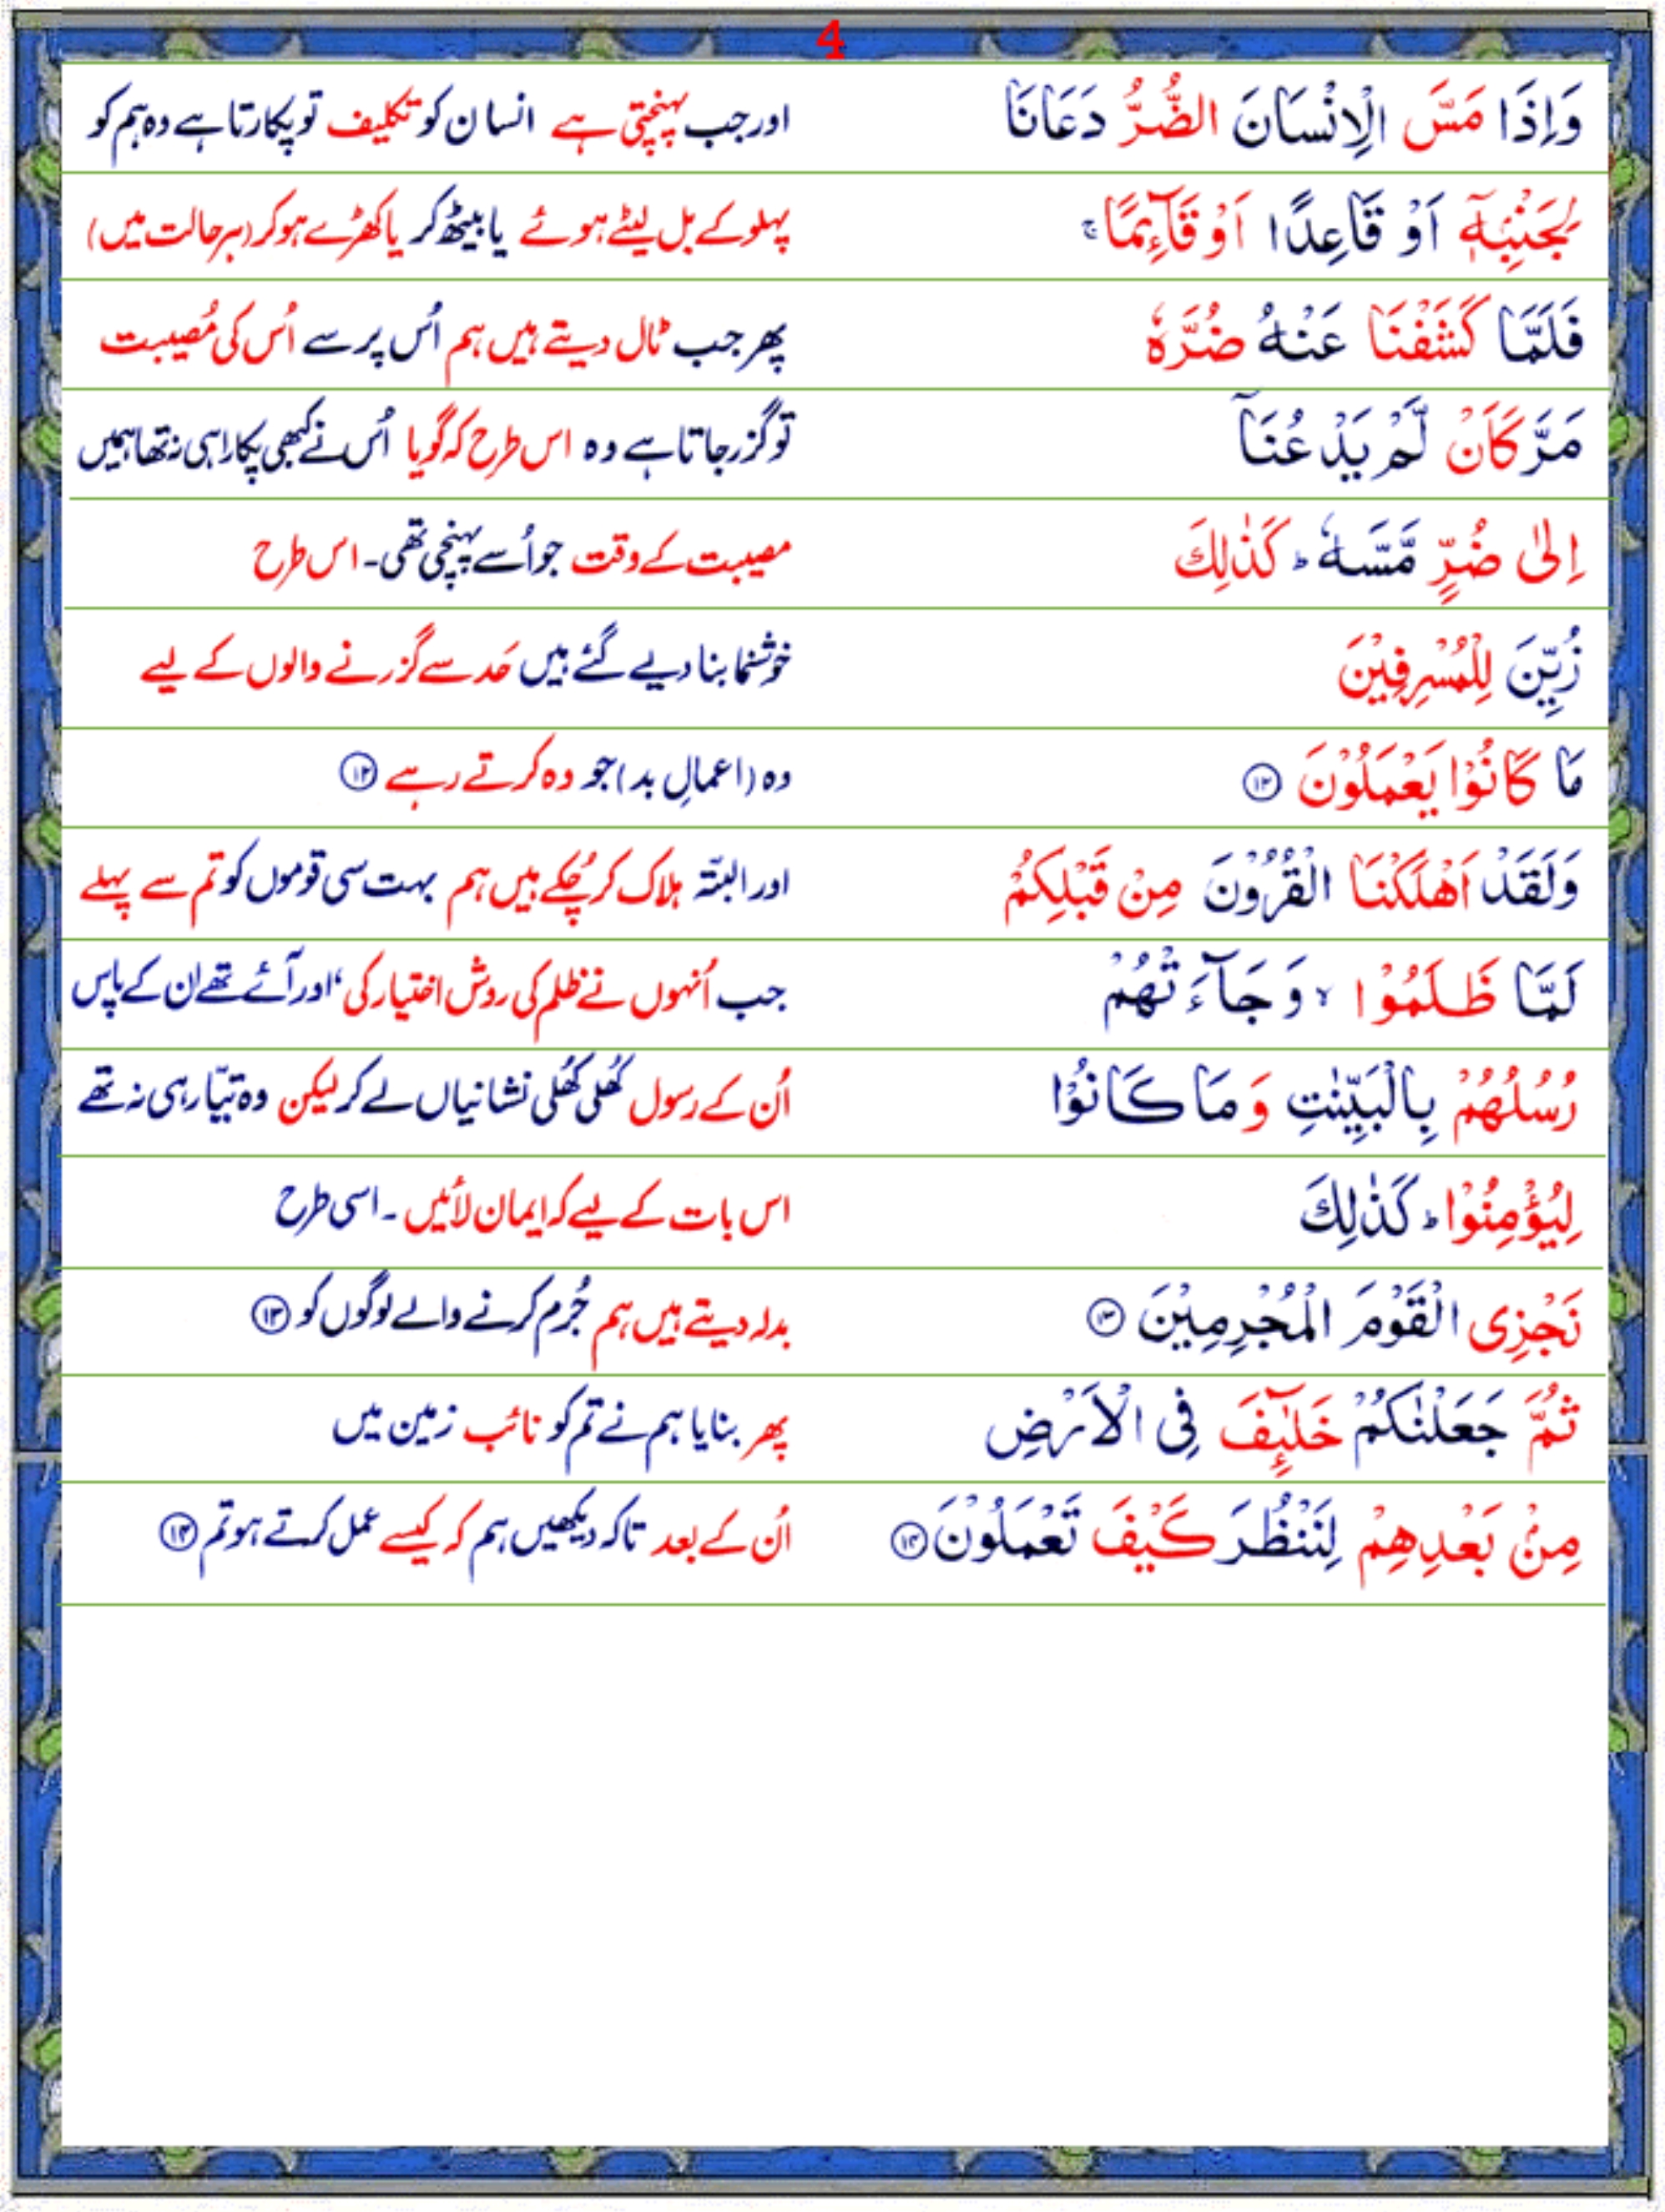 4
وَاِذَا مَسَّ الْاِنْسَانَ الضُّرُّ دَعَانَا اور جب پہنچتی ہے انسان کو تکلیف تو پکارتا ہے وہ ہم کو
لِجَنْۢبِهٖۤ اَوْ قَاعِدًا اَوْ قَآىِٕمًا ۚ پہلو کے بل لیٹے ہوئے یا بیٹھ کر یا کھڑے ہو کر (ہر حالت میں)
فَلَمَّا كَشَفْنَا عَنْهُ ضُرَّهٗ پھر جب ٹال دیتے ہیں ہم اُس پر سے اُس کی مُصیبت
مَرَّ كَاَنْ لَّمْ يَدْعُنَاۤ تو گزر جاتا ہے وہ اس طرح کہ گویا اُس نے کبھی پکارا ہی نہ تھا ہمیں
اِلٰى ضُرٍّ مَّسَّهٗ ؕ كَذٰلِكَ مصیبت کے وقت جو اُسے پہنچی تھی۔ اس طرح
زُيِّنَ لِلْمُسْرِفِيْنَ خوشنما بنا دیے گئے ہیں حَد سے گزرنے والوں کے لیے
مَا كَانُوْا يَعْمَلُوْنَ ۝۱۲ وہ (اعمالِ بد) جو وہ کرتے رہے ۝۱۲
وَلَقَدْ اَهْلَكْنَا الْقُرُوْنَ مِنْ قَبْلِكُمْ اور البتّہ ہلاک کر چُکے ہیں ہم بہت سی قوموں کو تم سے پہلے
لَمَّا ظَلَمُوْا ۙ وَجَآءَتْهُمْ جب اُنہوں نے ظلم کی روش اختیار کی، اور آئے تھے ان کے پاس
رُسُلُهُمْ بِالْبَيِّنٰتِ وَمَا كَانُوْا اُن کے رسول کُھلی کُھلی نشانیاں لے کر لیکن وہ تیّار ہی نہ تھے
لِيُؤْمِنُوْا ؕ كَذٰلِكَ اس بات کے لیے کہ ایمان لائیں۔ اسی طرح
نَجْزِى الْقَوْمَ الْمُجْرِمِيْنَ ۝۱۳ بدلہ دیتے ہیں ہم جُرم کرنے والے لوگوں کو ۝۱۳
ثُمَّ جَعَلْنٰكُمْ خَلٰٓىِٕفَ فِى الْاَرْضِ پھر بنایا ہم نے تم کو نائب زمین میں
مِنْۢ بَعْدِهِمْ لِنَنْظُرَ كَيْفَ تَعْمَلُوْنَ ۝۱۴ اُن کے بعد تاکہ دیکھیں ہم کہ کیسے عمل کرتے ہو تم ۝۱۴